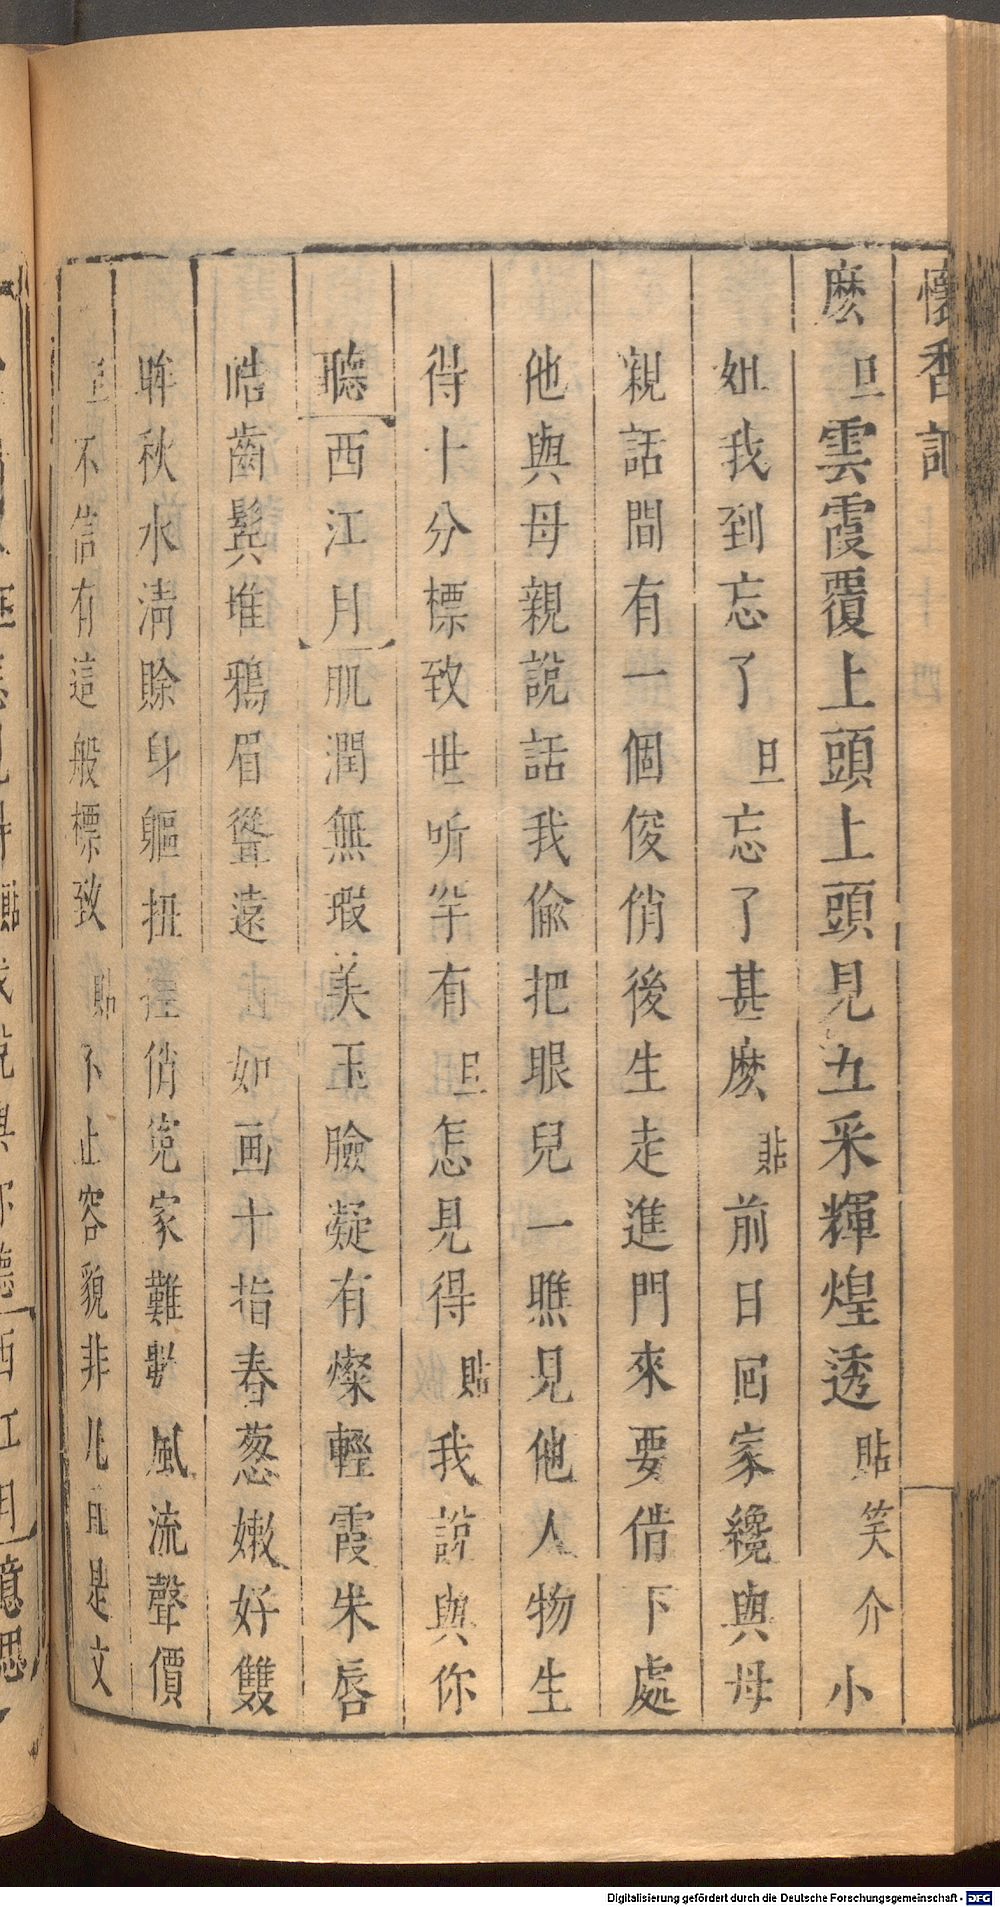 懷香記
麼 旦雲霞覆上頭上頭見五采輝煌透 貼笑介小
姐我到忘了 旦忘了甚麼 貼前日回家纔與母
親話間有一個俊俏後生走進門來要借下處
他與母親說話我偸把眼兒一瞧見他人物生
得十分標致世所罕有 旦怎見得 貼我說與你
聽西江月肌潤無瑕美玉臉凝有燦輕霞朱唇
皓齒髩堆鴉眉聳遠山如画十指春葱嫩好雙
眸秋水淸賒身軀扭揑俏寃家難數風流聲價
旦不信有這般標致 貼不止容貌非凡且是文
Digitalisierung gefördert durch die Deutsche Forschungsgemeinschaft - DFG